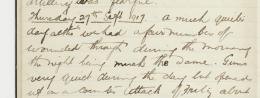 Thursday 27th Sept 1917. a much quieter
day altho we had a fair number of
wounded through during the morning
the night being much the same. Guns
very quiet during the day but opened
up on a counter attack of Fritz about